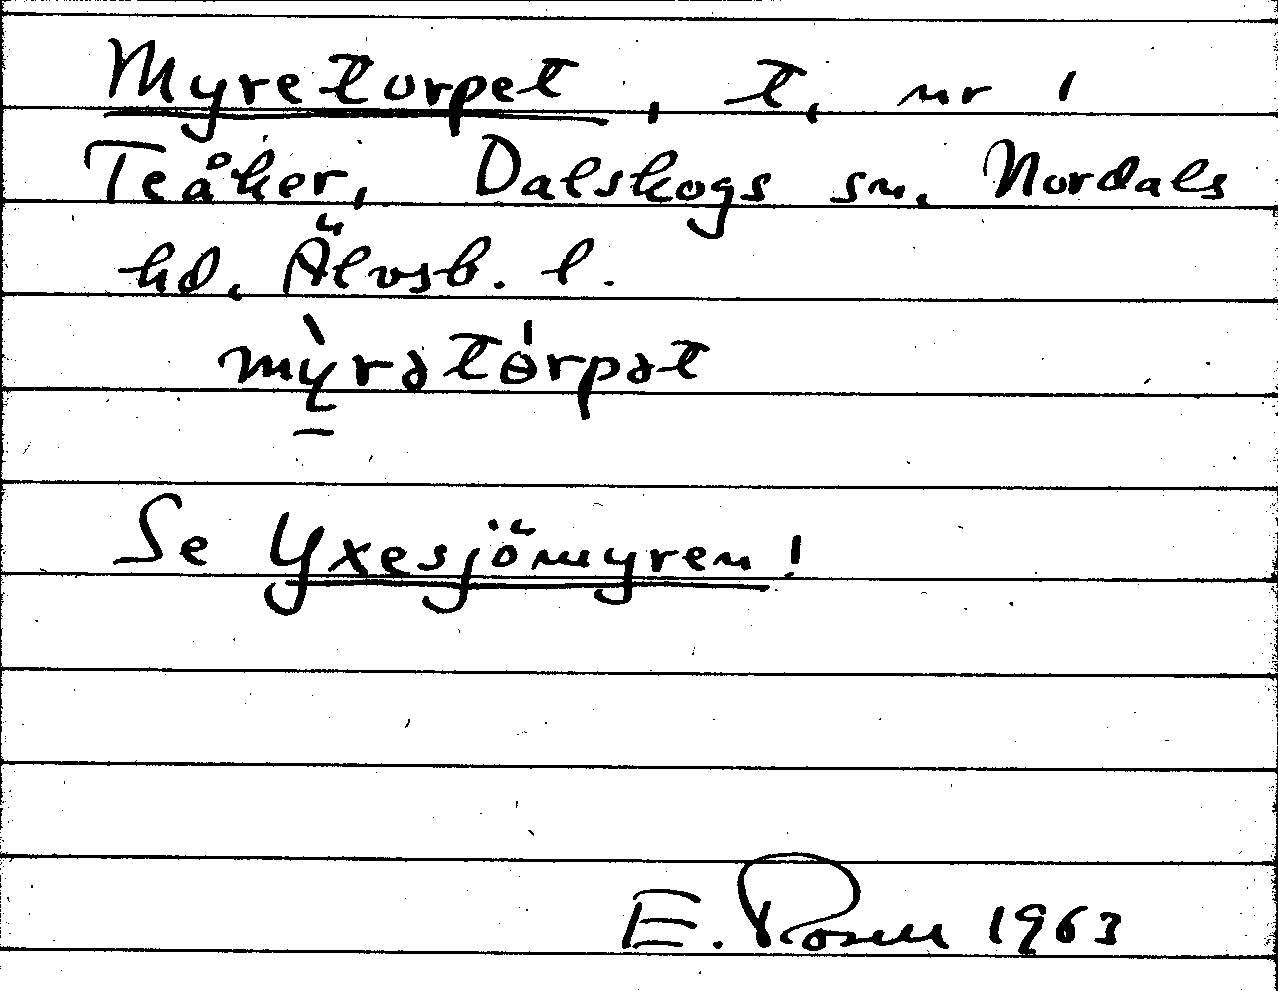 Myretorpet, t, nr 1
Teåker, Dalskogs sn. Nordals
hd. Älvsb. l.
mỳ̱rətɵ́rpət
Se Yxesjömyren!
E. Rosell 1963